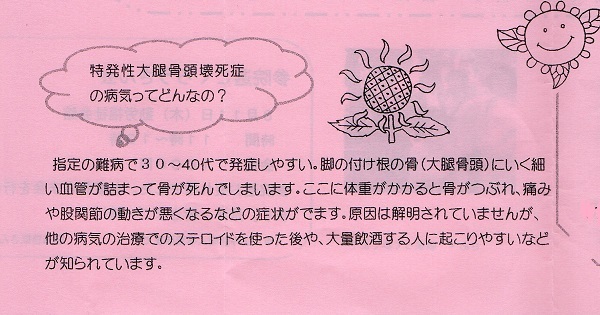 特発性大腿骨頭壊死症
の病気ってどんなの？
指定の難病で３０～40代で発症しやすい。脚の付け根の骨（大腿骨頭）にいく細
い血管が詰まって骨が死んでしまいます。ここに体重がかかると骨がつぶれ、痛み
や股関節の動きが悪くなるなどの症状がでます。原因は解明されていませんが、
他の病気の治療でのステロイドを使った後や、大量飲酒する人に起こりやすいなど
が知られています。